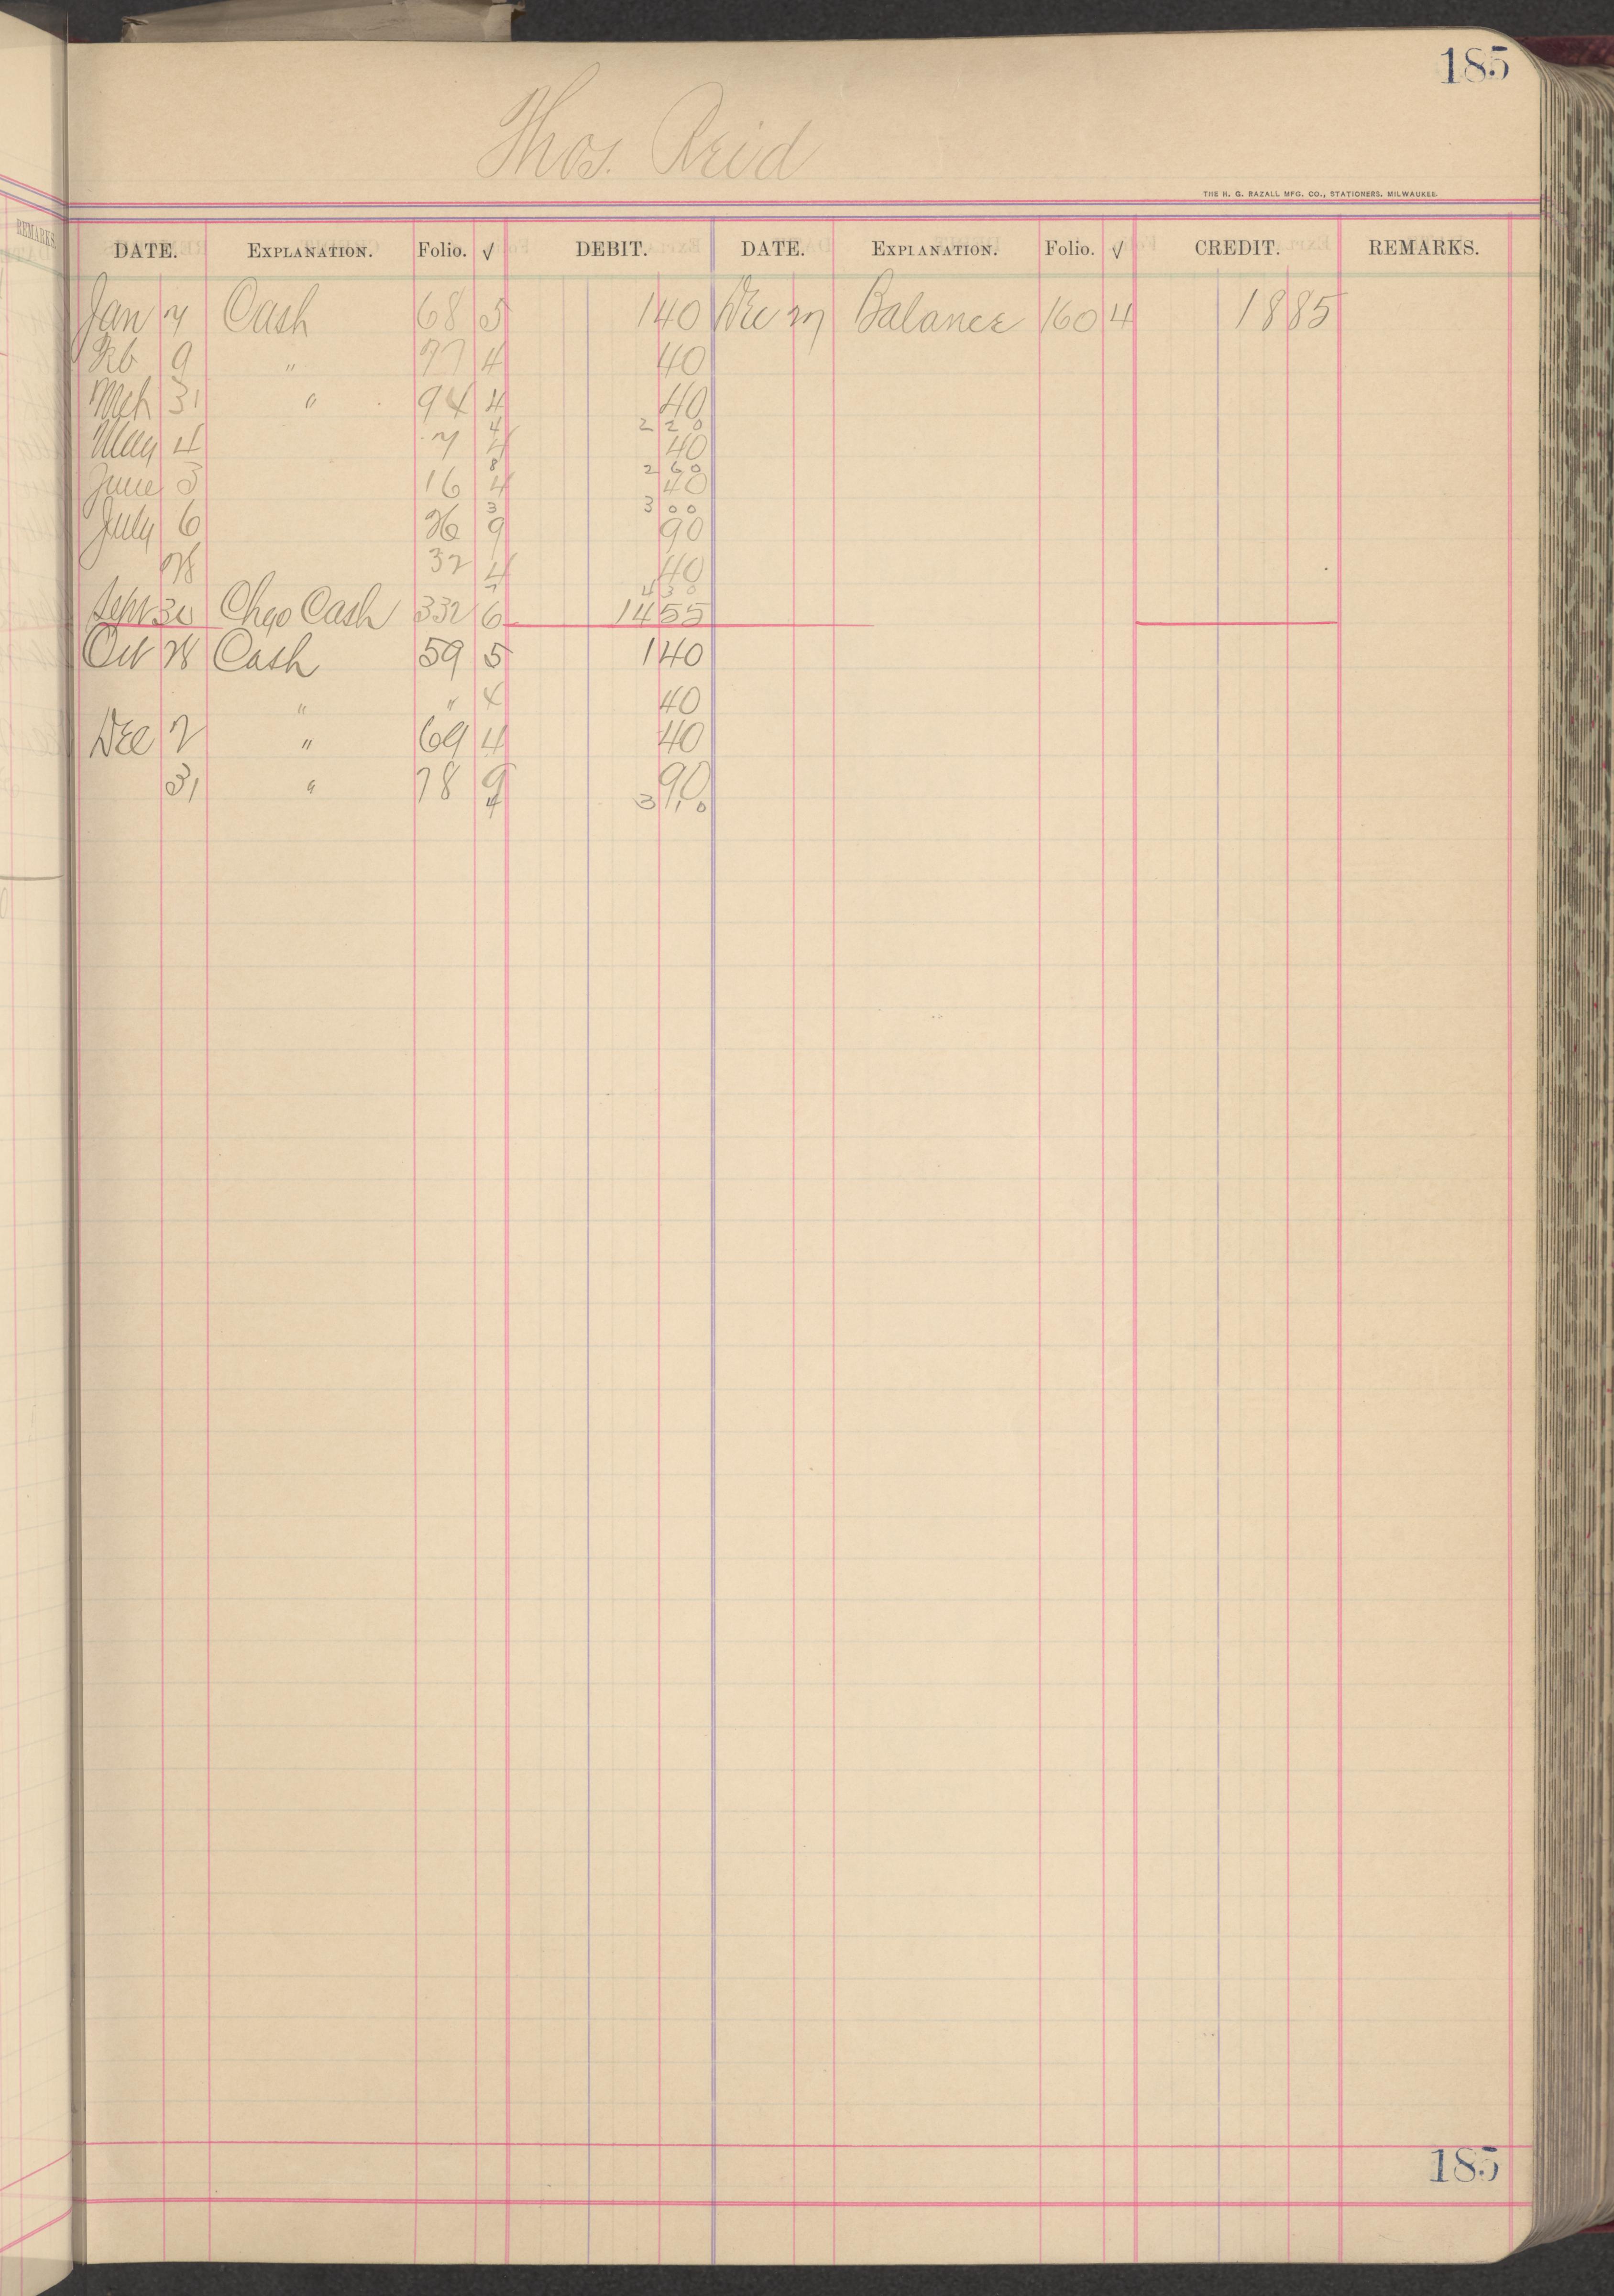 185
Thos. Reid
THE H. G. RAZALL MFG. CO., STATIONERS, MILWAUKEE.
DATE. EXPLANATION. Folio. √ DEBIT. DATE. EXPLANATION. Folio. √ CREDIT. REMARKS.
Jan 7 Cash 68 5 140 Dec 27 Balance 160 4 1885
Feb 9 " 77 4 40
Mch 31 " 94 4 40
4 2 20
May 4 7 4 40
8 2 60
June 3 16 4 40
3 3 00
July 6 26 9 90
28 32 4 40
4 30
Sept 30 Chgo Cash 332 6 1455
Oct 28 Cash 59 5 140
" " 4 40
Dec 2 " 69 4 40
31 " 78 9 90
4 3 10
185